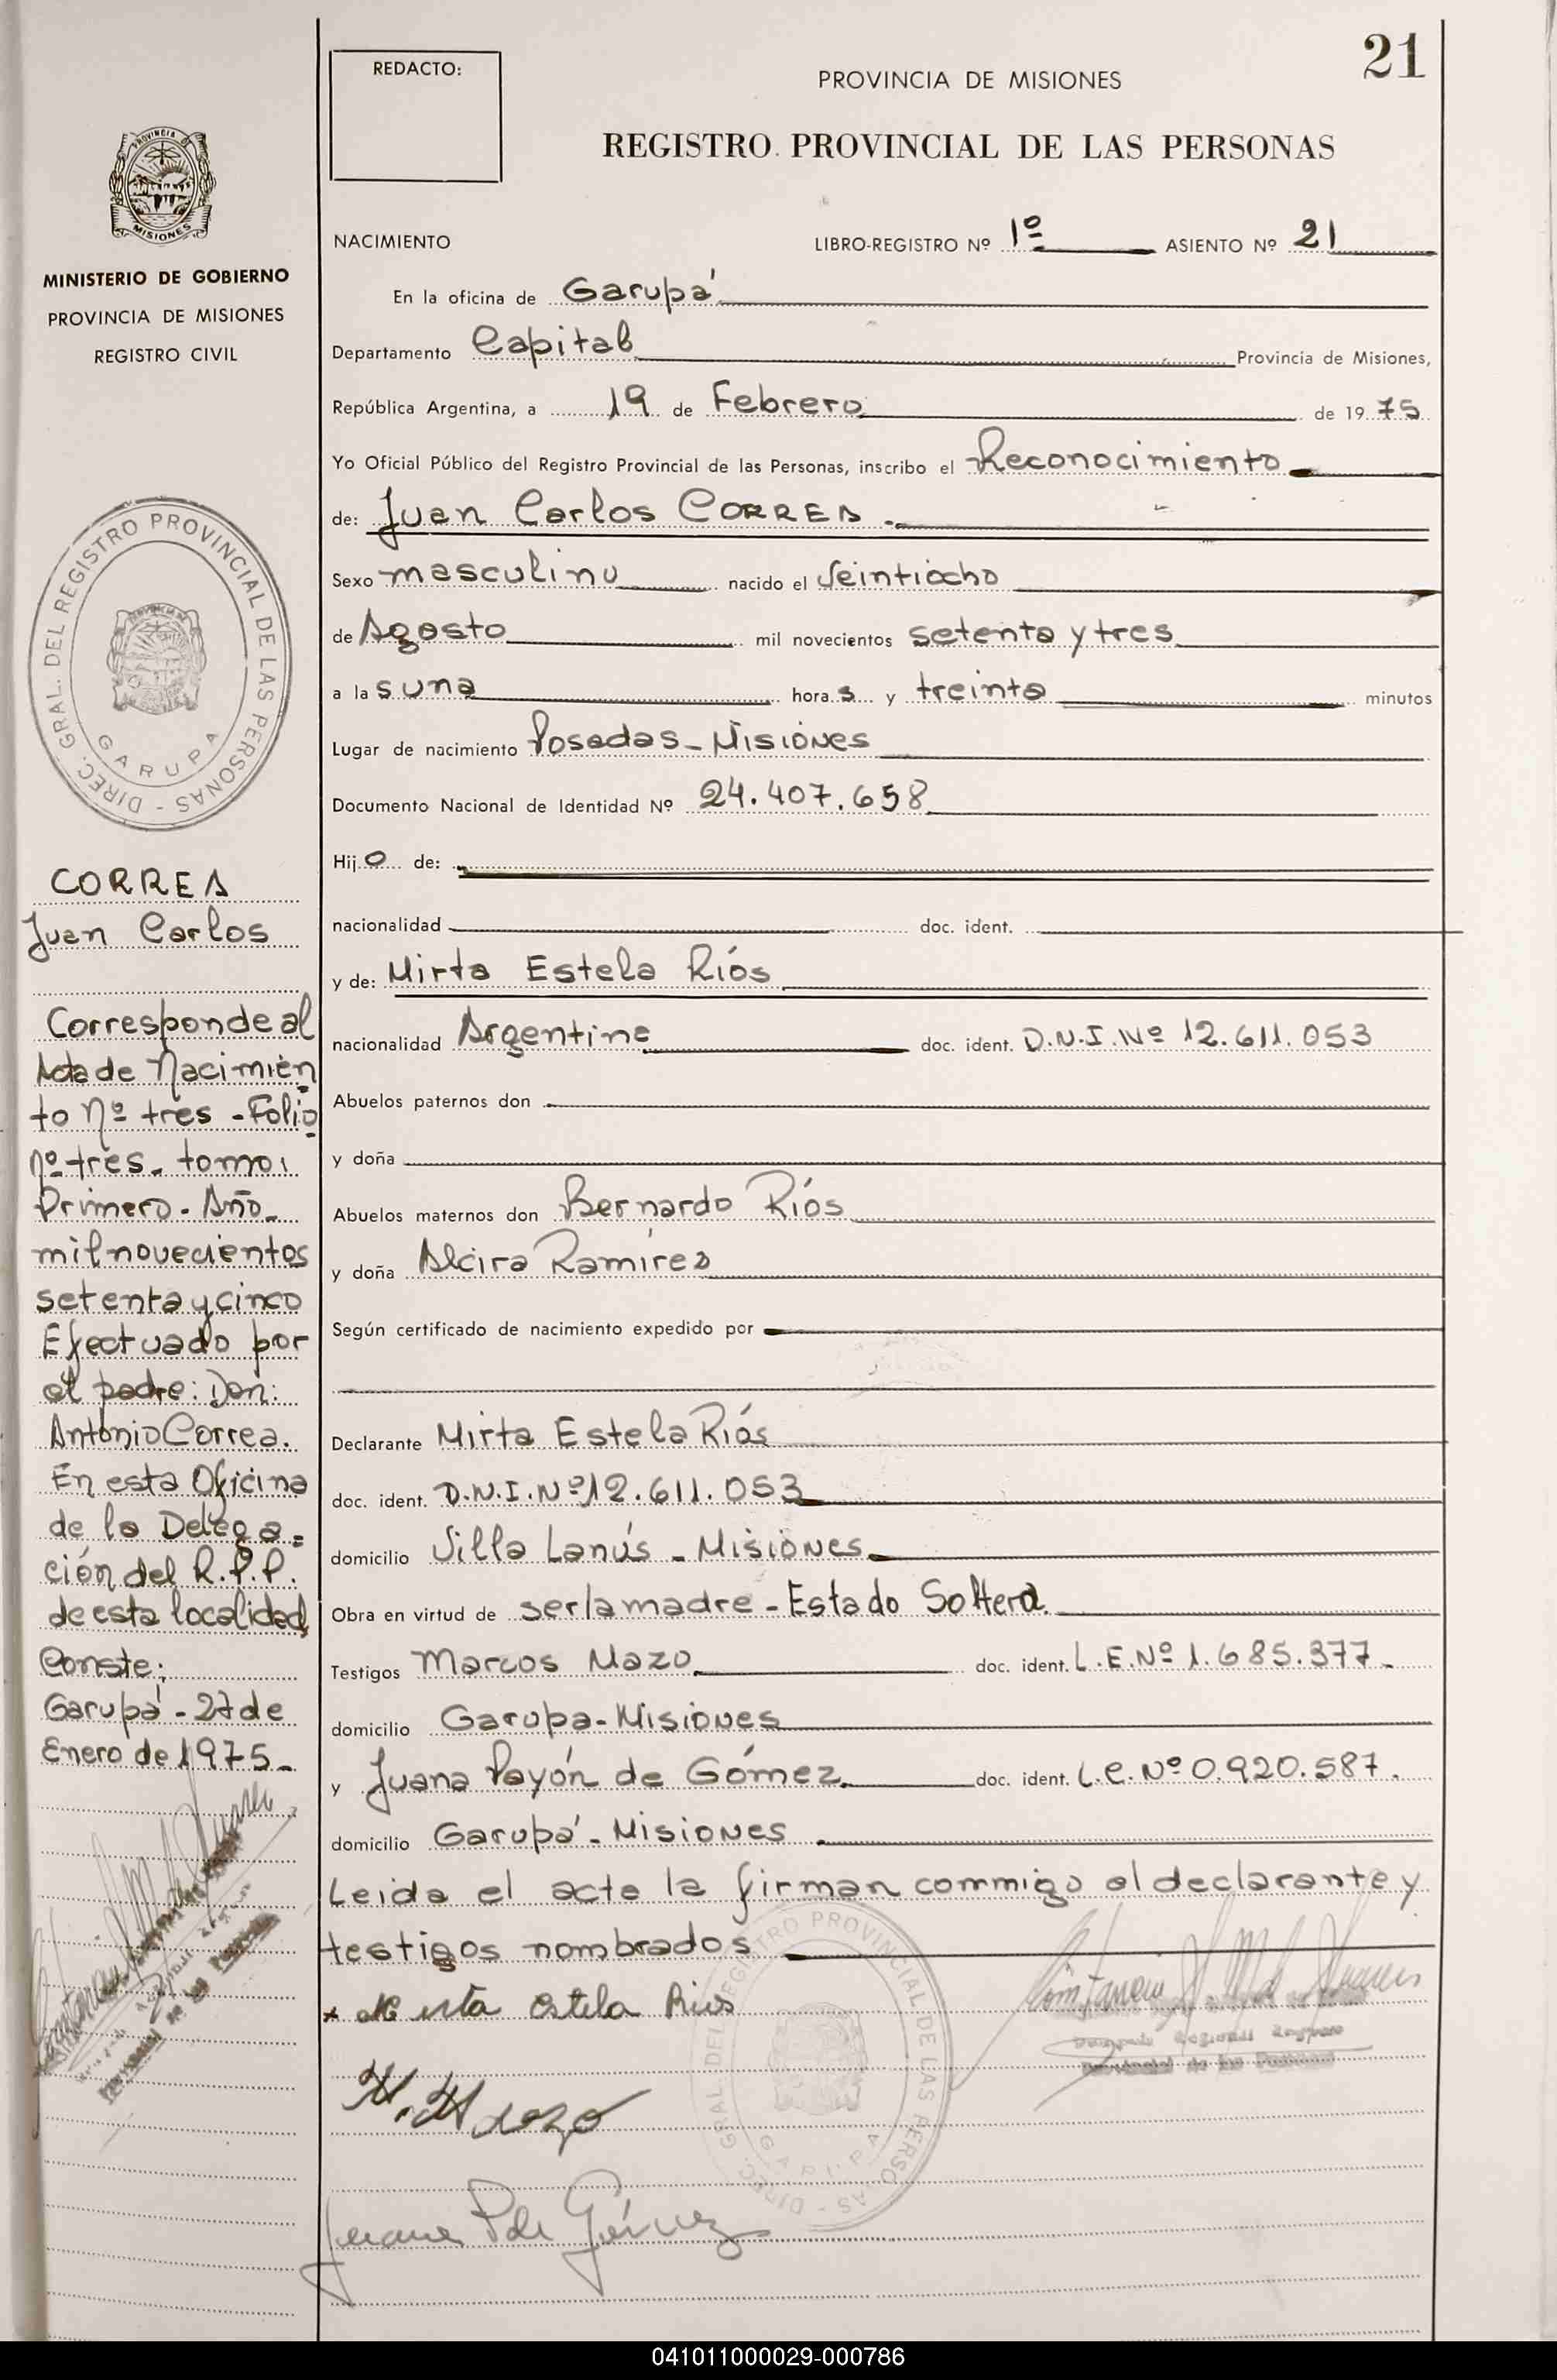 21
REDACTO:
PROVINCIA DE MISIONES
REGISTRO PROVINCIAL DE LAS PERSONAS
NACIMIENTO LIBRO-REGISTRO Nº 1º ASIENTO Nº 21
En la oficina de Garupá
Departamento Capital Provincia de Misiones,
República Argentina, a 19 de Febrero de 1975
Yo Oficial Público del Registro Provincial de las Personas, inscribo el Reconocimiento
de: Juan Carlos CORREA.-
Sexo masculino nacido el Veintiocho
de Agosto mil novecientos setenta y tres
a las una horas y treinta minutos
Lugar de nacimiento Posadas - Misiones
Documento Nacional de Identidad Nº 24.407.658
Hijo de:
nacionalidad doc. ident.
y de: Mirta Estela Ríos
nacionalidad Argentina doc. ident. D.N.I. Nº 12.611.053
Abuelos paternos don
y doña
Abuelos maternos don Bernardo Ríos
y doña Alcira Ramírez
Según certificado de nacimiento expedido por
Declarante Mirta Estela Ríos
doc. ident. D.N.I. Nº 12.611.053
domicilio Villa Lanús - Misiones
Obra en virtud de ser la madre - Estado Soltera.
Testigos Marcos Mazo doc. ident. L.E. Nº 1.685.377.-
domicilio Garupa - Misiones
y Juana Payón de Gómez doc. ident. L.C. Nº 0.920.587.
domicilio Garupá - Misiones
Leida el acta la firman commigo el declarante y
testigos nombrados
x Mirta Estela Rios
M. Mazo
Juana P de Gómez
PROVINCIA DE
MISIONES
MINISTERIO DE GOBIERNO
PROVINCIA DE MISIONES
REGISTRO CIVIL
DIREC. GRAL. DEL REGISTRO PROVINCIAL DE LAS PERSONAS -
GARUPA
CORREA
Juan Carlos
Corresponde al
Acta de Nacimien
to Nº tres - Folio
Nº tres - tomo:
Primero - Año -
mil novecientos
setenta y cinco
Efectuado por
el padre: Don:
Antonio Correa.
En esta Oficina
de la Delega=
ción del R.P.P.
de esta localidad
Conste:
Garupá - 27 de
Enero de 1975-
DIREC. GRAL. DEL REGISTRO PROVINCIAL DE LAS PERSONAS -
GARUPA
041011000029-000786